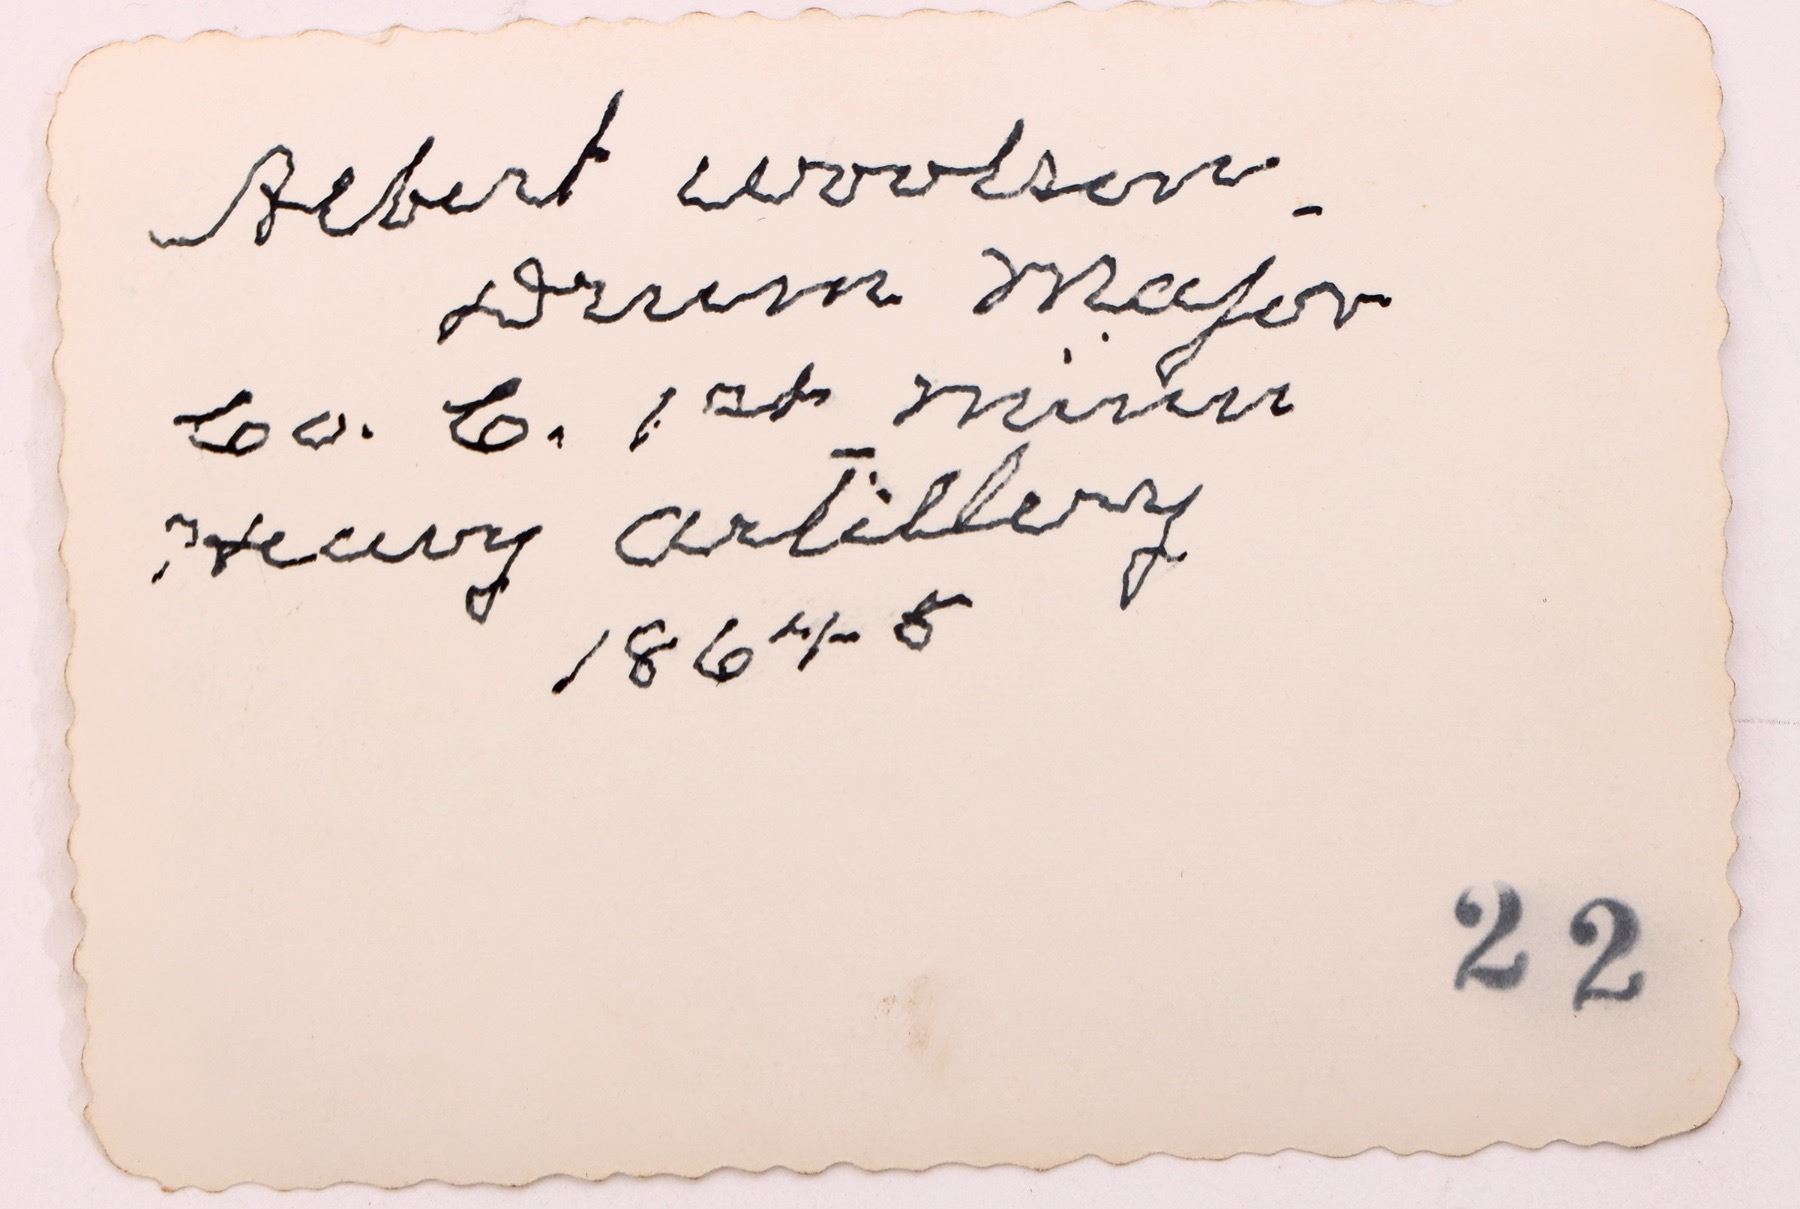 Albert Woolson -
Drum Major
Co. C. 1st Minn
Heavy Artillery
1864-5
22